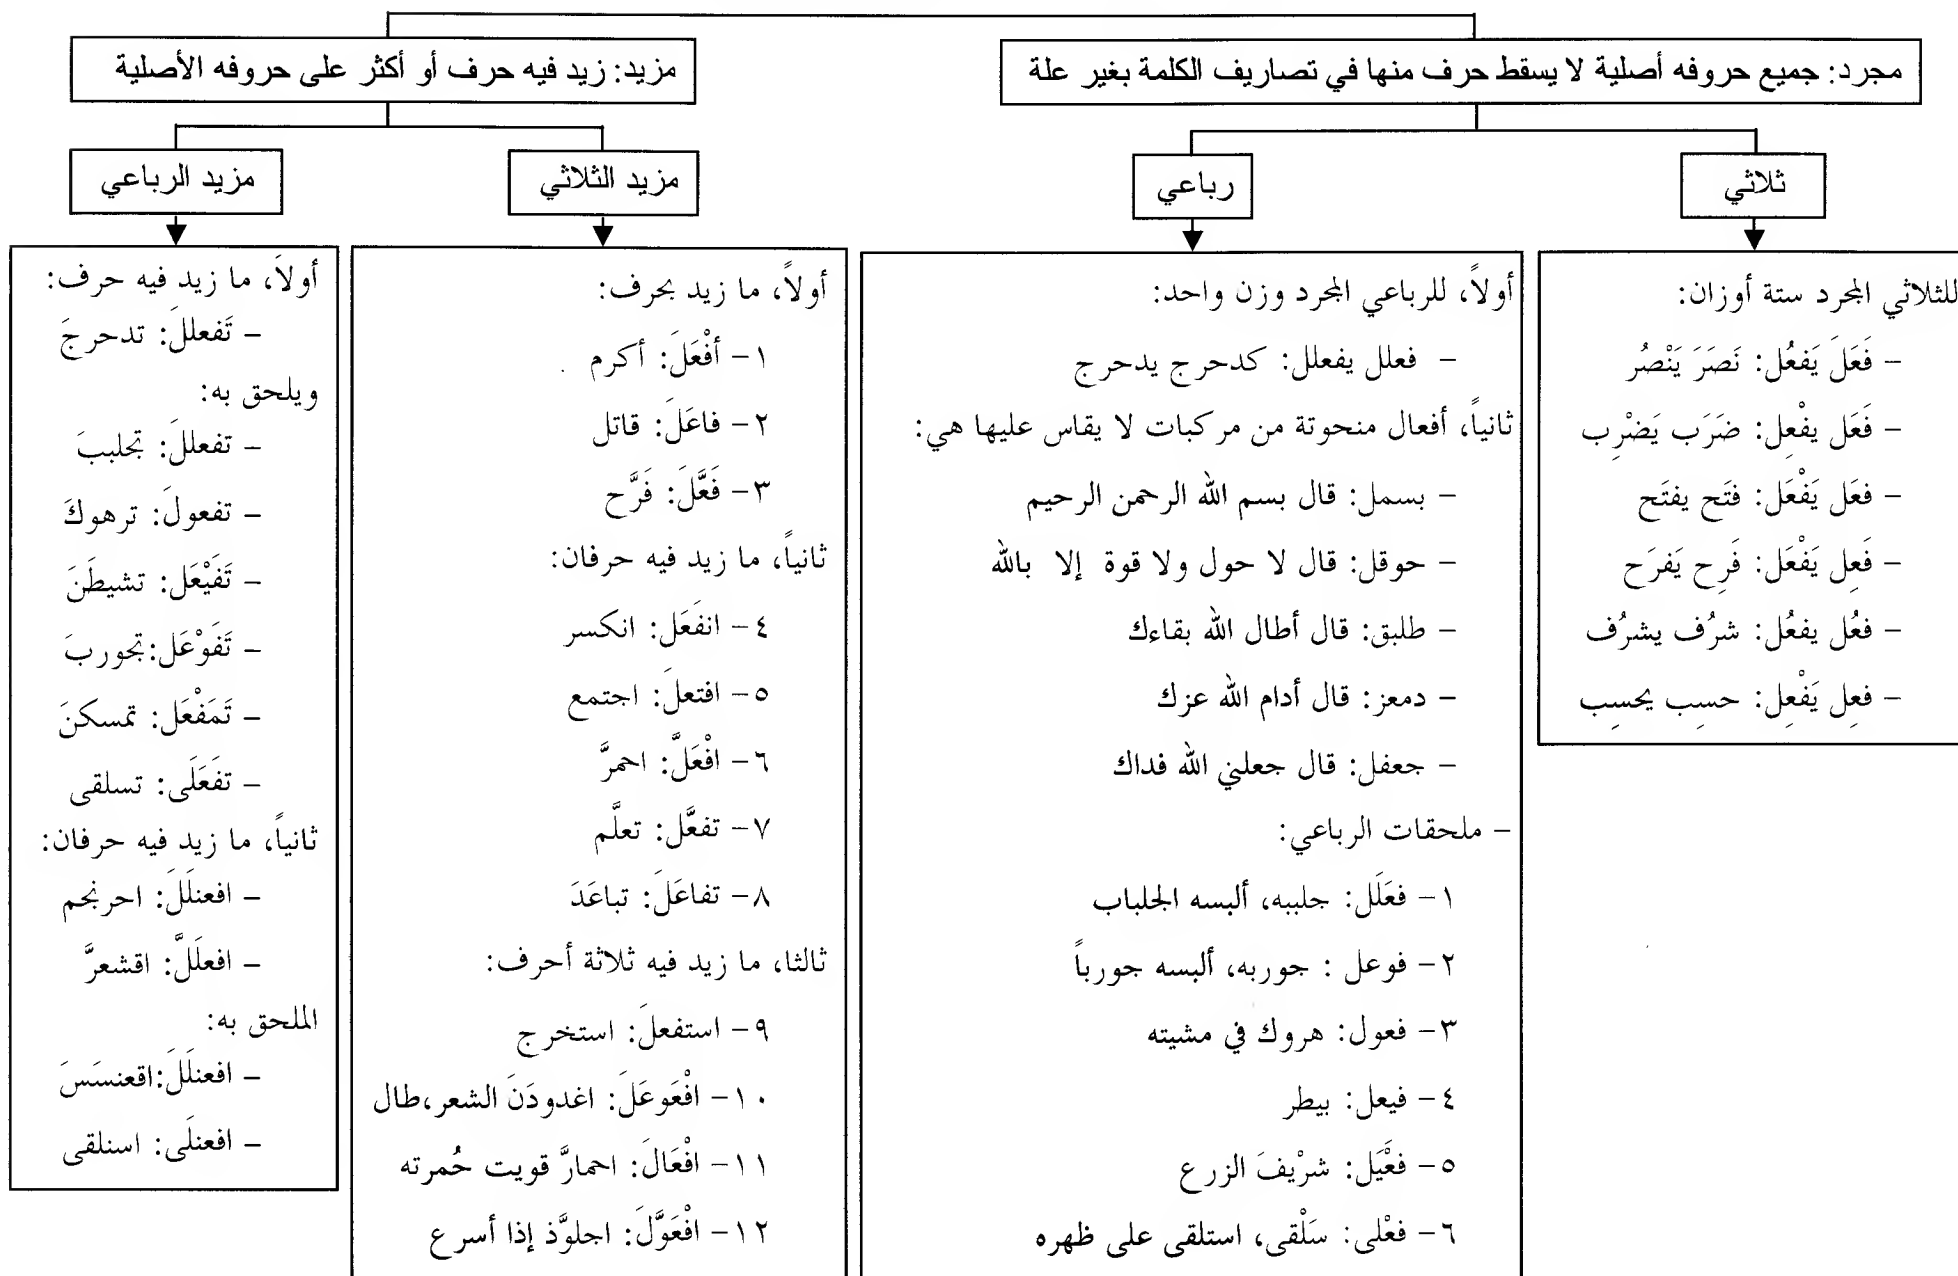 مجرد: جميع حروفه أصلية لا يسقط حرف منها في تصاريف الكلمة بغير علة
مزيد: زيد فيه حرف أو أكثر على حروفه الأصلية
ثلاثي
رباعي
مزيد الثلاثي
مزيد الرباعي
للثلاثي المجرد ستة أوزان:
– فَعَلَ يَفعُل: نَصَرَ يَنْصُر
– فَعَل يفْعِل: ضَرَب يَضْرِب
– فعَل يَفْعَل: فتَح يفتَح
– فَعِل يَفْعَل: فَرِح يَفرَح
– فعُل يفعُل: شرُف يشرُف
– فعِل يَفْعِل: حسِب يحسِب
أولاً، للرباعي المجرد وزن واحد:
– فعلل يفعلل: كدحرج يدحرج
ثانياً، أفعال منحوتة من مركبات لا يقاس عليها هي:
– بسمل: قال بسم الله الرحمن الرحيم
– حوقل: قال لا حول ولا قوة إلا بالله
– طلبق: قال أطال الله بقاءك
– دمعز: قال أدام الله عزك
– جعفل: قال جعلني الله فداك
– ملحقات الرباعي:
١– فعَلَل: جلببه، ألبسه الجلباب
٢– فوعل : جوربه، ألبسه جورباً
٣– فعول: هروك في مشيته
٤– فيعل: بيطر
٥– فعْيَل: شرْيفَ الزرع
٦– فعْلى: سَلْقى، استلقى على ظهره
أولاً، ما زيد بحرف:
١– أفْعَلَ: أكرم
٢– فاعَلَ: قاتل
٣– فَعَّلَ: فَرَّح
ثانياً، ما زيد فيه حرفان:
٤– انفَعَل: انكسر
٥– افتعلَ: اجتمع
٦– افْعَلَّ: احمرَّ
٧– تفعَّل: تعلَّم
٨– تفاعَلَ: تباعَدَ
ثالثا، ما زيد فيه ثلاثة أحرف:
٩– استفعلَ: استخرج
١٠– افْعَوعَلَ: اغدودَنَ الشعر،طال
١١– افْعَالَ: احمارَّ قويت حُمرته
١٢– افْعَوَّلَ: اجلوَّذ إذا أسرع
أولاً، ما زيد فيه حرف:
– تَفعللَ: تدحرجَ
ويلحق به:
– تفعللَ: تجلببَ
– تفعولَ: ترهوكَ
– تَفَيْعَل: تشيطَنَ
– تَفَوْعَل:تجوربَ
– تَمَفْعَل: تمسكنَ
– تفَعَلَى: تسلقى
ثانياً، ما زيد فيه حرفان:
– افعنلَلَ: احرنجم
– افعلَلَّ: اقشعرَّ
الملحق به:
– افعنلَلَ:اقعنسَسَ
– افعنلَى: اسنلقى